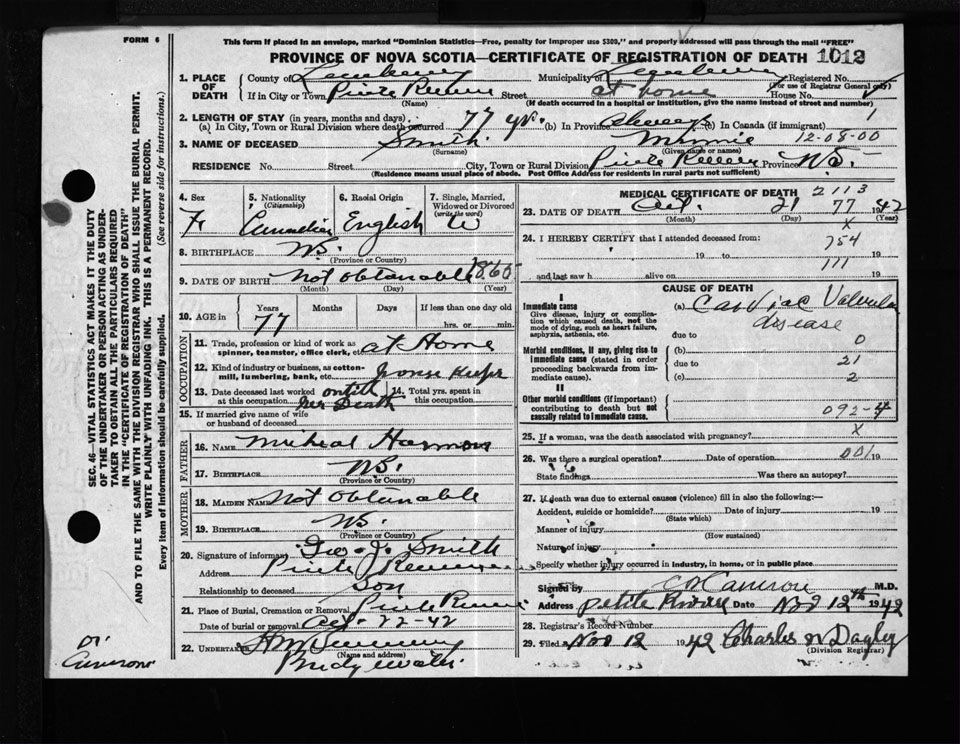 FORM 6
This form if placed in an envelope, marked "Dominion Statistics—Free, penalty for improper use $300," and properly addressed will pass through the mail "FREE"
PROVINCE OF NOVA SCOTIA—CERTIFICATE OF REGISTRATION OF DEATH 1012
1. PLACE OF DEATH County of Municipality of Registered No.
(For use of Registrar General only)
If in City or Town Street at home House No.
(Name) (If death occurred in a hospital or institution, give the name instead of street and number)
2. LENGTH OF STAY (in years, months and days) 1
(a) In City, Town or Rural Division where death occurred 77 yr. (b) In Province always (c) In Canada (if immigrant)
12-08-00
3. NAME OF DECEASED Smith Minnie
(Surname) (Given name or names)
RESIDENCE No. Street City, Town or Rural Division Province N.S.
(Residence means usual place of abode. Post Office Address for residents in rural parts not sufficient)
4. Sex F
5. Nationality (Citizenship) Canadian
6. Racial Origin English
7. Single, Married, Widowed or Divorced (write the word) W
8. BIRTHPLACE N.S.
(Province or Country)
9. DATE OF BIRTH Not Obtanable 1865
(Month) (Day) (Year)
10. AGE in Years Months Days If less than one day old
77 hrs. or min.
OCCUPATION
11. Trade, profession or kind of work as spinner, teamster, office clerk, etc. at Home
12. Kind of industry or business, as cotton-mill, lumbering, bank, etc. House Keeper
13. Date deceased last worked at this occupation her Death
14. Total yrs. spent in this occupation
15. If married give name of wife or husband of deceased
FATHER
16. NAME Micheal
17. BIRTHPLACE N.S.
(Province or Country)
MOTHER
18. MAIDEN NAME Not Obtanable
19. BIRTHPLACE N.S.
(Province or Country)
20. Signature of informant Geo. J. Smith
Address
Relationship to deceased Son
21. Place of Burial, Cremation or Removal
Date of burial or removal Oct-22-42
22. UNDERTAKER
(Name and address)
Bridgewater
MEDICAL CERTIFICATE OF DEATH 2113
23. DATE OF DEATH Oct. 21 77 1942
(Month) (Day) (Year)
X
24. I HEREBY CERTIFY that I attended deceased from:
754
19 to 19
111
and last saw h alive on 19
CAUSE OF DEATH
I
Immediate cause
Give disease, injury or complication which caused death, not the mode of dying, such as heart failure, asphyxia, asthenia, etc.
(a) Cardiac Valvular
disease
due to 0
Morbid conditions, if any, giving rise to immediate cause (stated in order proceeding backwards from immediate cause).
(b)
due to 21
(c) 2
II
Other morbid conditions (if important) contributing to death but not causally related to immediate cause.
092-4
25. If a woman, was the death associated with pregnancy? X
26. Was there a surgical operation? Date of operation 001 19
State findings Was there an autopsy?
27. If death was due to external causes (violence) fill in also the following:—
Accident, suicide or homicide? Date of injury 19
(State which)
Manner of injury
(How sustained)
Nature of injury
Specify whether injury occurred in industry, in home, or in public place
Signed by Cameron M.D.
Address Petite Riviere Date Nov 12th 1942
28. Registrar's Record Number
29. Filed Nov 12 1942 Charles W Dagley
(Division Registrar)
SEC. 46—VITAL STATISTICS ACT MAKES IT THE DUTY
OF THE UNDERTAKER OR PERSON ACTING AS UNDER-
TAKER TO OBTAIN ALL THE PARTICULARS REQUIRED
IN THE "CERTIFICATE OF REGISTRATION OF DEATH"
AND TO FILE THE SAME WITH THE DIVISION REGISTRAR WHO SHALL ISSUE THE BURIAL PERMIT.
WRITE PLAINLY WITH UNFADING INK. THIS IS A PERMANENT RECORD.
Every item of information should be carefully supplied. (See reverse side for instructions.)
Dr
Cameron